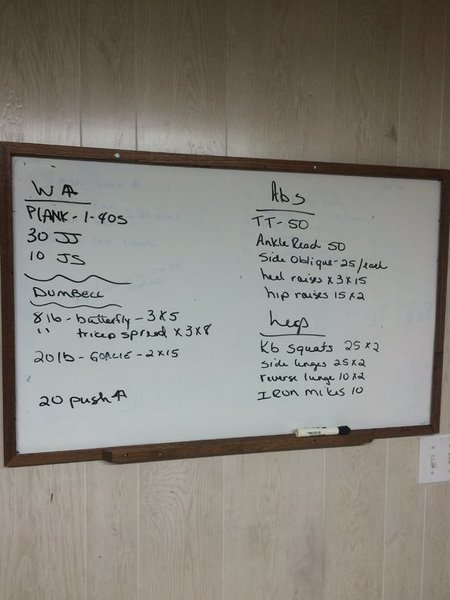 W
PLANK - 1 - 40s
30 JJ
10 JS
DUMBELL
8 lb - butterfly - 3 x 5
" tricep spread x 3 x 8
20 lb - GOALIE - 2 x 15
20 push
Abs
TT - 50
Ankle Reach 50
Side Oblique - 25/each
heel raises x 3 x 15
hip raises 15 x 2
Legs
Kb squats 25 x 2
side lunges 25 x 2
reverse lunge 10 x 2
IRON mikes 10